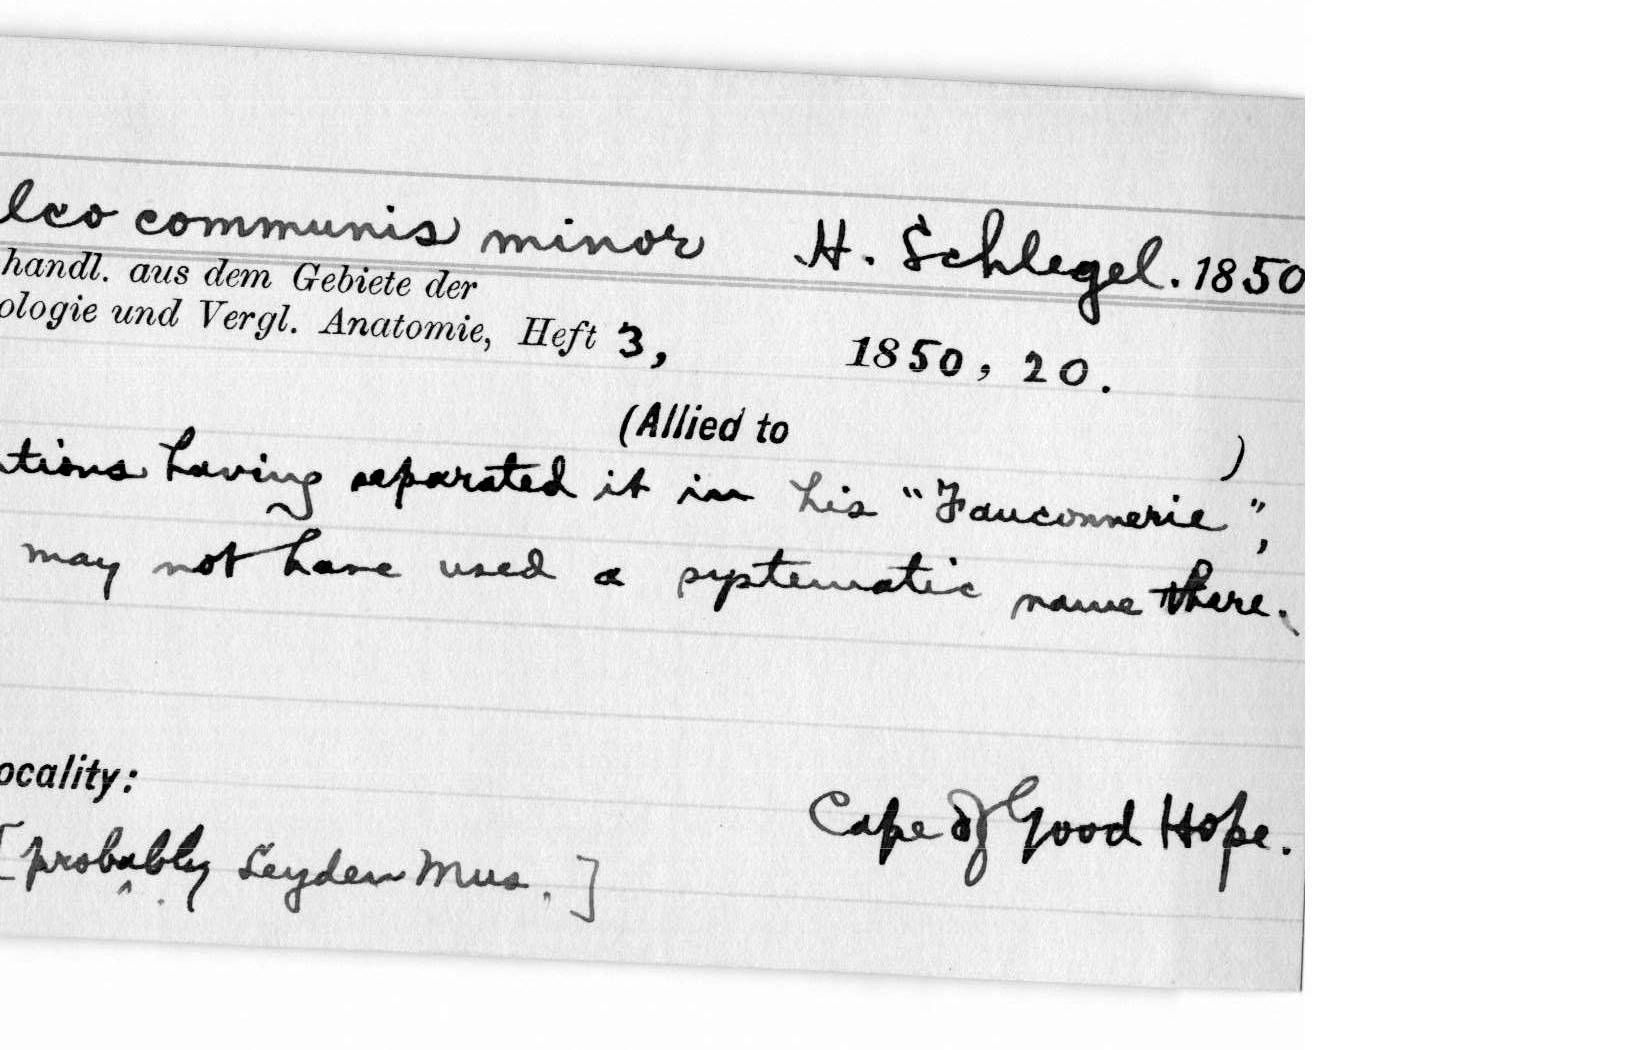 lco communis minor H. Schlegel. 1850
handl. aus dem Gebiete der
ologie und Vergl. Anatomie, Heft 3, 1850, 20.
(Allied to )
tions having separated it in his "Fauconnerie",
may not have used a systematic name there.
ocality:
Cape of Good Hope.
[probably Leyden Mus.]